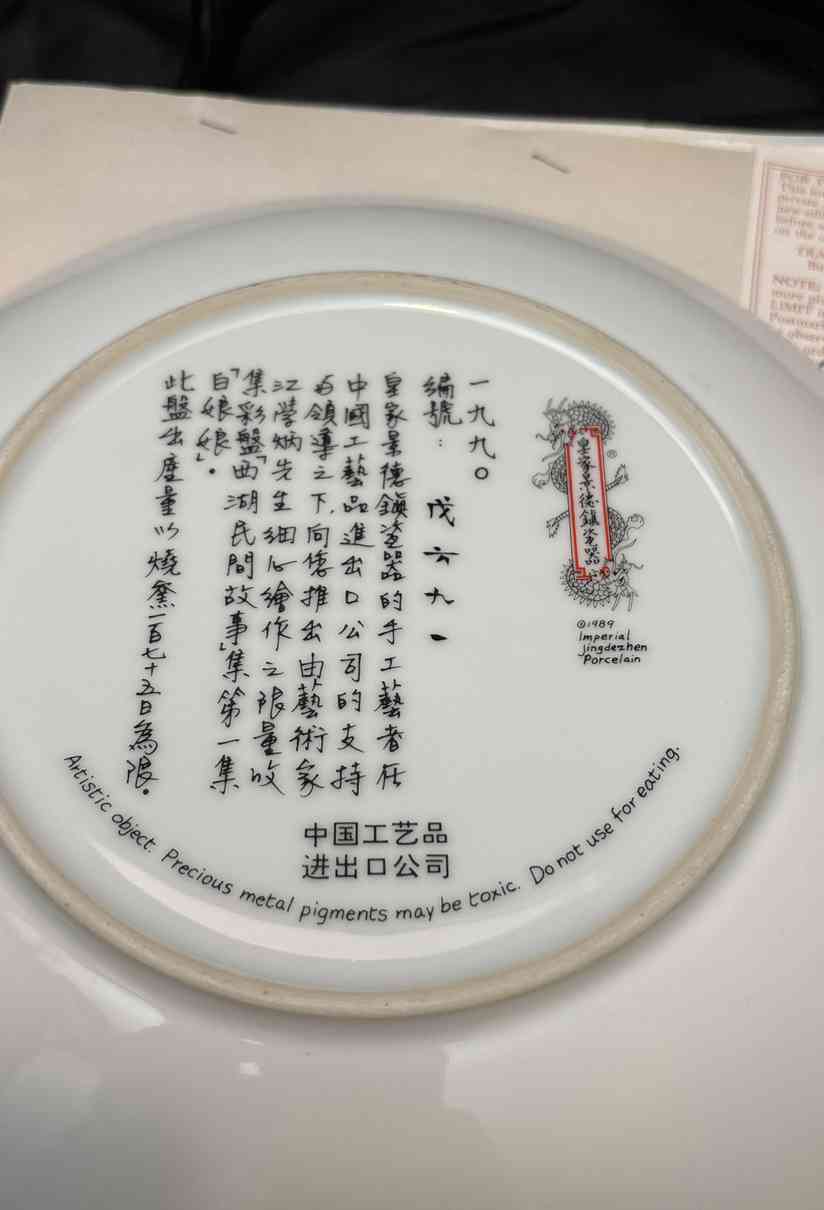 皇家景德鎮瓷器
®
©1989
Imperial
Jingdezhen
Porcelain
一九九〇
編號：戊六九一
皇家景德鎮瓷器的手工藝者在
中國工藝品進出口公司的支持
与領導之下,向您推出由藝術家
江學炳先生細心繪作之限量收
集彩盤「西湖民間故事」集第一集
「白娘娘」。
此盤出産量以燒窯一百七十五日為限。
中国工艺品
进出口公司
Artistic object. Precious metal pigments may be toxic. Do not use for eating.
NOTE:
LIMIT